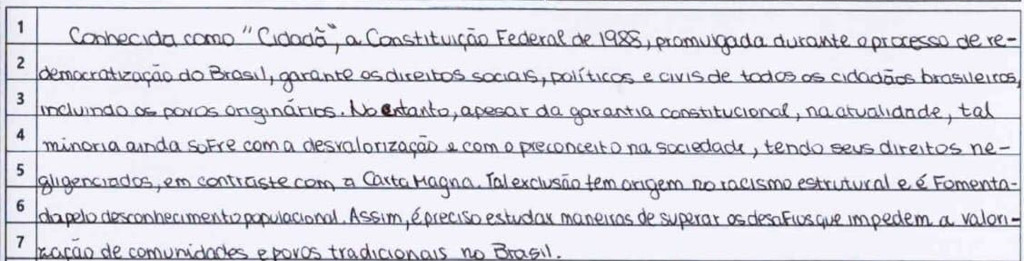 1 Conhecida como "Cidadã", a Constituição Federal de 1988, promulgada durante o processo de re-
2 democratização do Brasil, garante os direitos sociais, políticos e civis de todos os cidadãos brasileiros,
3 incluindo os povos originários. No entanto, apesar da garantia constitucional, na atualidade, tal
4 minoria ainda sofre com a desvalorização e com o preconceito na sociedade, tendo seus direitos ne-
5 gligenciados, em contraste com a Carta Magna. Tal exclusão tem origem no racismo estrutural e é fomenta-
6 da pelo desconhecimento populacional. Assim, é preciso estudar maneiras de superar os desafios que impedem a valori-
7 zação de comunidades e povos tradicionais no Brasil.